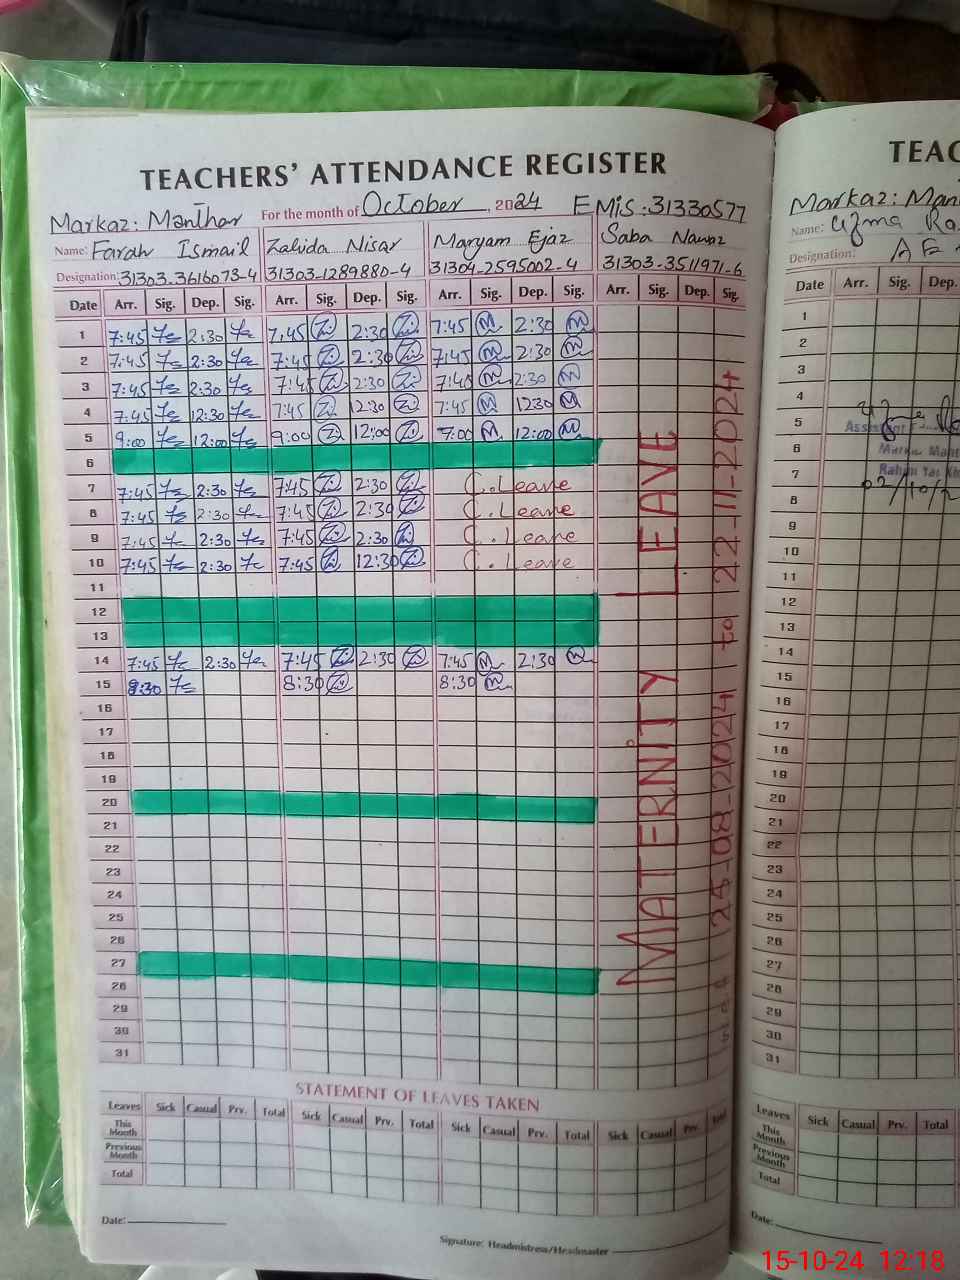 TEACHERS' ATTENDANCE REGISTER
Markaz: Manthar For the month of October, 2024 EMis: 31330577
Name: Farah Ismail Zahida Nisar Maryam Ejaz Saba Nawaz
Designation: 31303-3616073-4 31303-1289880-4 31304-2595002-4 31303-3511971-6
Date Arr. Sig. Dep. Sig. Arr. Sig. Dep. Sig. Arr. Sig. Dep. Sig. Arr. Sig. Dep. Sig.
1 7:45 2:30 7:45 2:30 7:45 2:30
2 7:45 2:30 7:45 2:30 7:45 2:30
3 7:45 2:30 7:45 2:30 7:45 2:30
4 7:45 12:30 7:45 12:30 7:45 1230
5 9:00 12:00 9:00 12:00 9:00 12:00
6
7 7:45 2:30 7:45 2:30 C. Leave
8 7:45 2:30 7:45 2:30 C. Leave
9 7:45 2:30 7:45 2:30 C. Leave
10 7:45 2:30 7:45 12:30 C. Leave
11
12
13
14 7:45 2:30 7:45 2:30 7:45 2:30
15 8:30 8:30 8:30
16
17
18
19
20
21
22
23
24
25
26
27
28
29
30
31
MATERNITY LEAVE
-08-2024 to 22-11-2024
STATEMENT OF LEAVES TAKEN
Leaves Sick Casual Prv. Total Sick Casual Prv. Total Sick Casual Prv. Total Sick Casual Prv. Total
This Month
Previous Month
Total
Date:
Signature: Headmistress/Headmaster
TEAC
Markaz: Man
Name: Uzma Ra
Designation:
Date Arr. Sig. Dep.
1
2
3
4
5
6
7
8
9
10
11
12
13
14
15
16
17
18
19
20
21
22
23
24
25
26
27
28
29
30
31
Leaves Sick Casual Prv. Total
This Month
Previous Month
Total
Date:
15-10-24 12:18